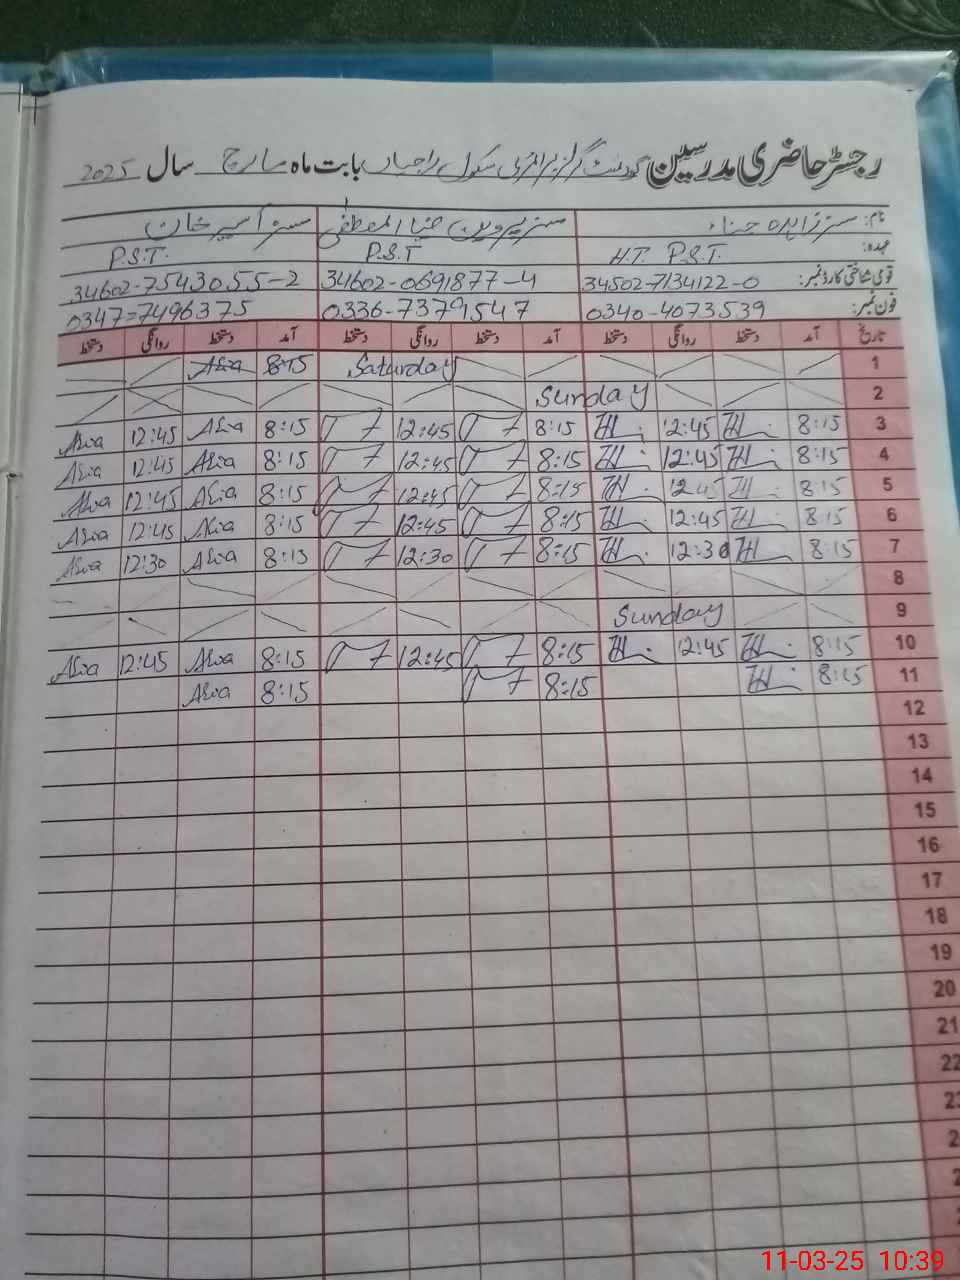 رجسٹر حاضری مدرسین گورنمنٹ گرلز پرائمری سکول راجباں بابت ماہ مارچ سال 2025
نام: مسز زاہدہ مسز پروین ضیاء المصطفی مسز آسیہ خان
عہدہ: H.T. P.S.T. P.S.T P.S.T.
قومی شناختی کارڈ نمبر: 34502-7134122-0 34602-0691877-4 34602-7543055-2
فون نمبر: 0340-4073539 0336-7379547 0347-7496375
تاریخ آمد دستخط روانگی دستخط آمد دستخط روانگی دستخط آمد دستخط روانگی دستخط
1 Saturday 8:15 Asia
2 Sunday
3 8:15 12:45 8:15 12:45 8:15 Asia 12:45 Asia
4 8:15 12:45 8:15 12:45 8:15 Asia 12:45 Asia
5 8:15 12:45 8:15 12:45 8:15 Asia 12:45 Asia
6 8:15 12:45 8:15 12:45 8:15 Asia 12:45 Asia
7 8:15 12:30 8:15 12:30 8:15 Asia 12:30 Asia
8
9 Sunday
10 8:15 12:45 8:15 12:45 8:15 Asia 12:45 Asia
11 8:15 8:15 8:15 Asia
12
13
14
15
16
17
18
19
20
21
22
11-03-25 10:39